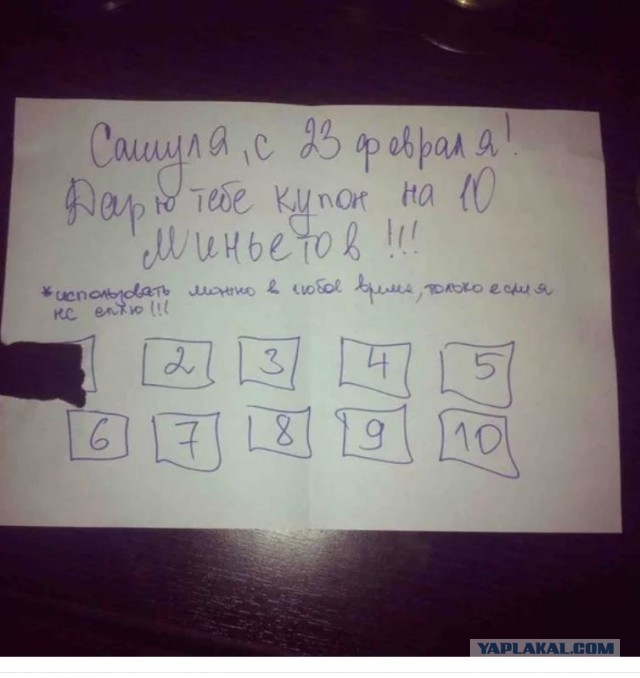 Сашуля, с 23 февраля!
Дарю тебе купон на 10
Миньетов!!!
*использовать можно в любое время, только если я
не сплю!!!
2 3 4 5
6 7 8 9 10
YAPLAKAL.COM